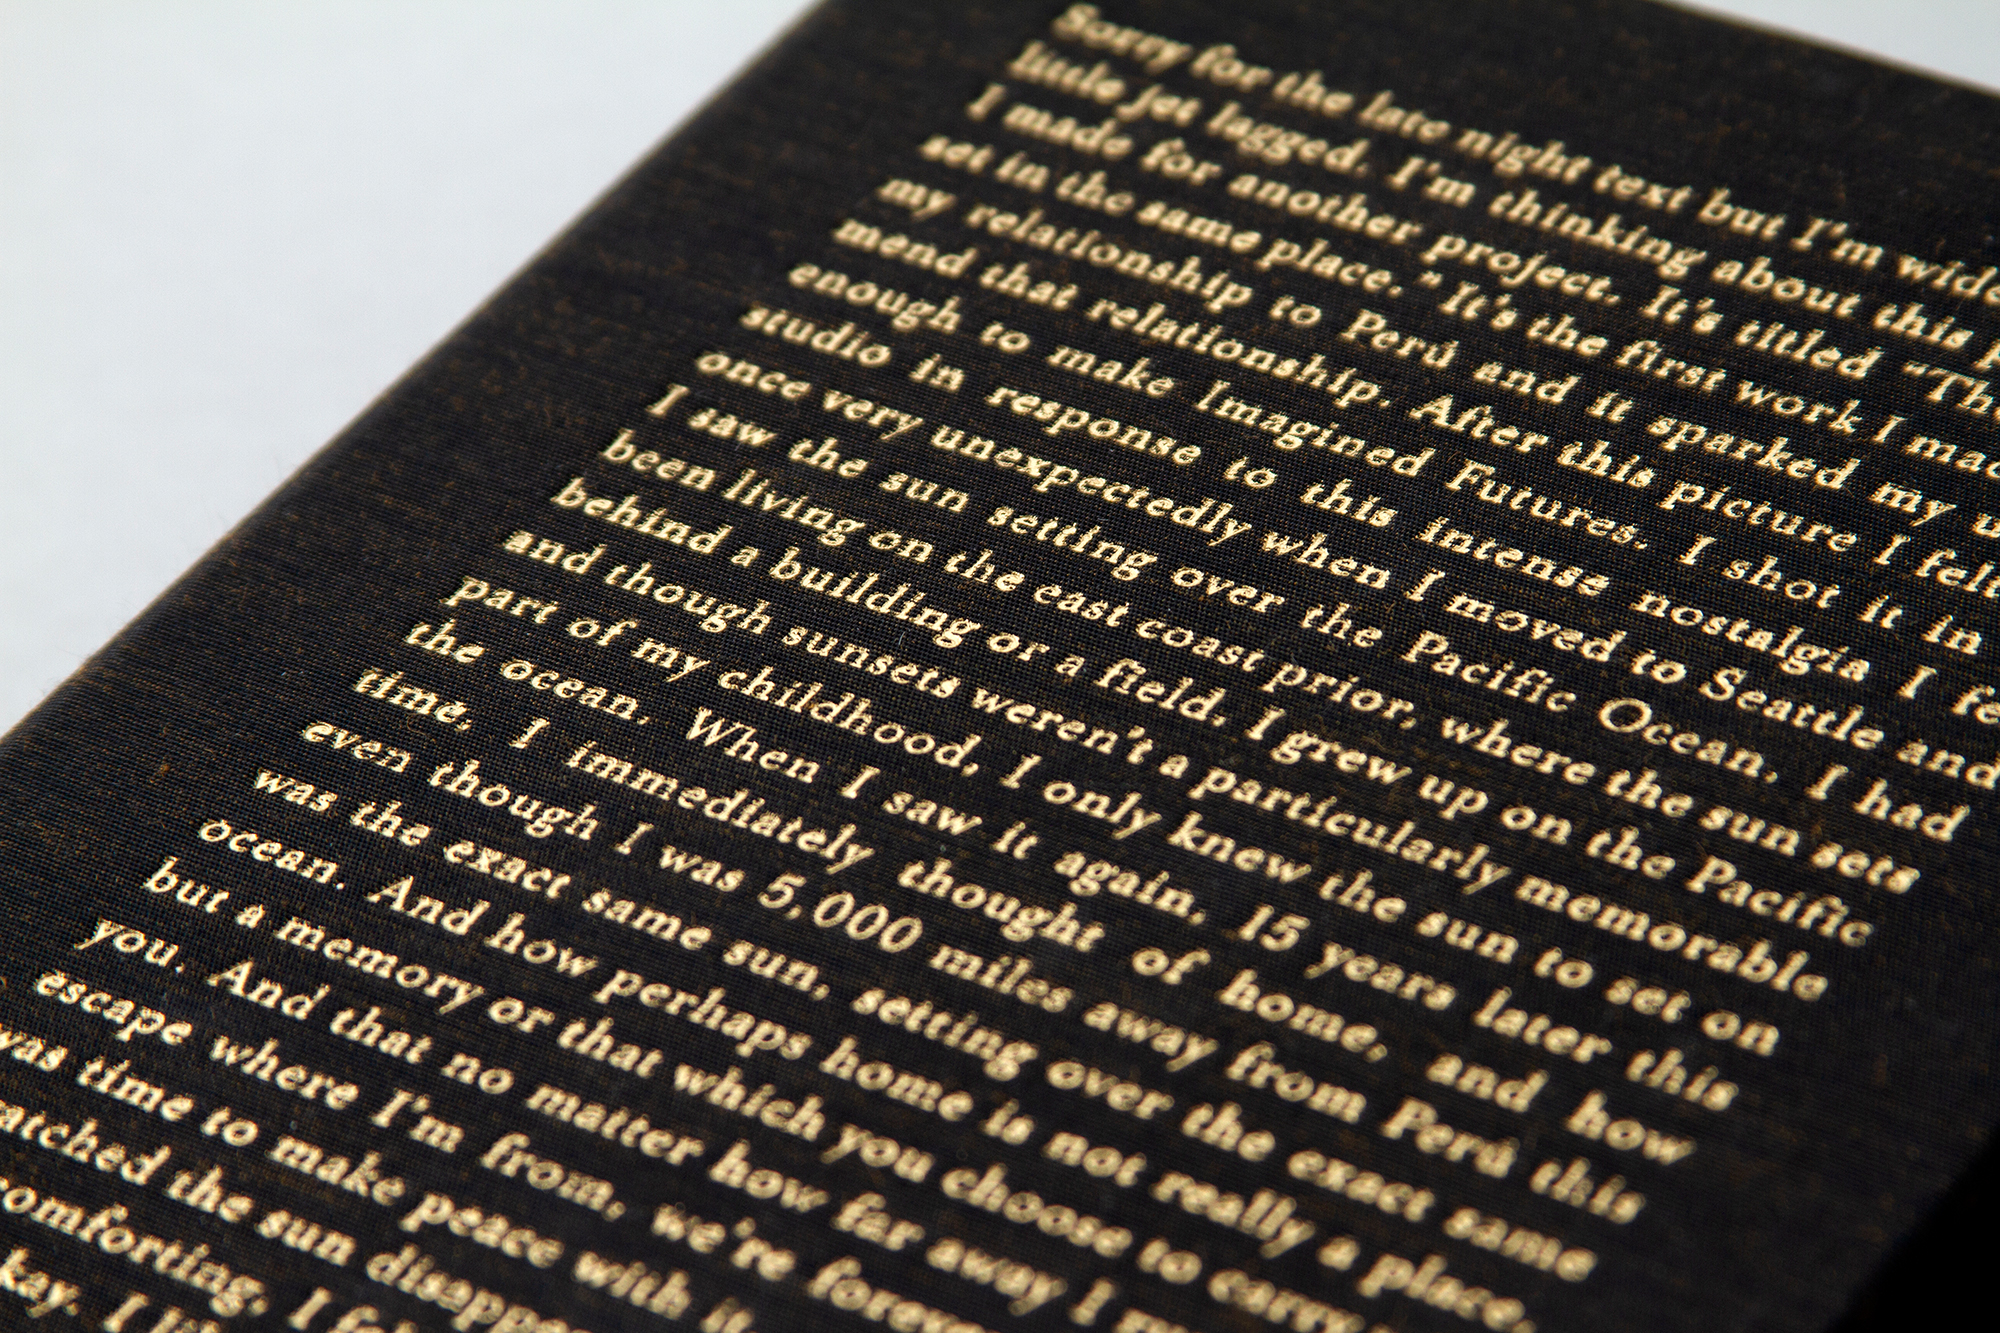 Sorry for the late night text but I'm wide
little jet lagged. I'm thinking about this
I made for another project. It's titled “Th
set in the same place.” It's the first work I mad
my relationship to Perú and it sparked my
mend that relationship. After this picture I felt
enough to make Imagined Futures. I shot it in
studio in response to this intense nostalgia I fe
once very unexpectedly when I moved to Seattle and
I saw the sun setting over the Pacific Ocean. I had
been living on the east coast prior, where the sun sets
behind a building or a field. I grew up on the Pacific
and though sunsets weren't a particularly memorable
part of my childhood, I only knew the sun to set on
the ocean. When I saw it again, 15 years later this
time, I immediately thought of home, and how
even though I was 5,000 miles away from Perú this
was the exact same sun, setting over the exact same
ocean. And how perhaps home is not really a place,
but a memory or that which you choose to carry
you. And that no matter how far away I
escape where I'm from, we're foreve
was time to make peace with
atched the sun disappe
comforting. I fel
kay. I li